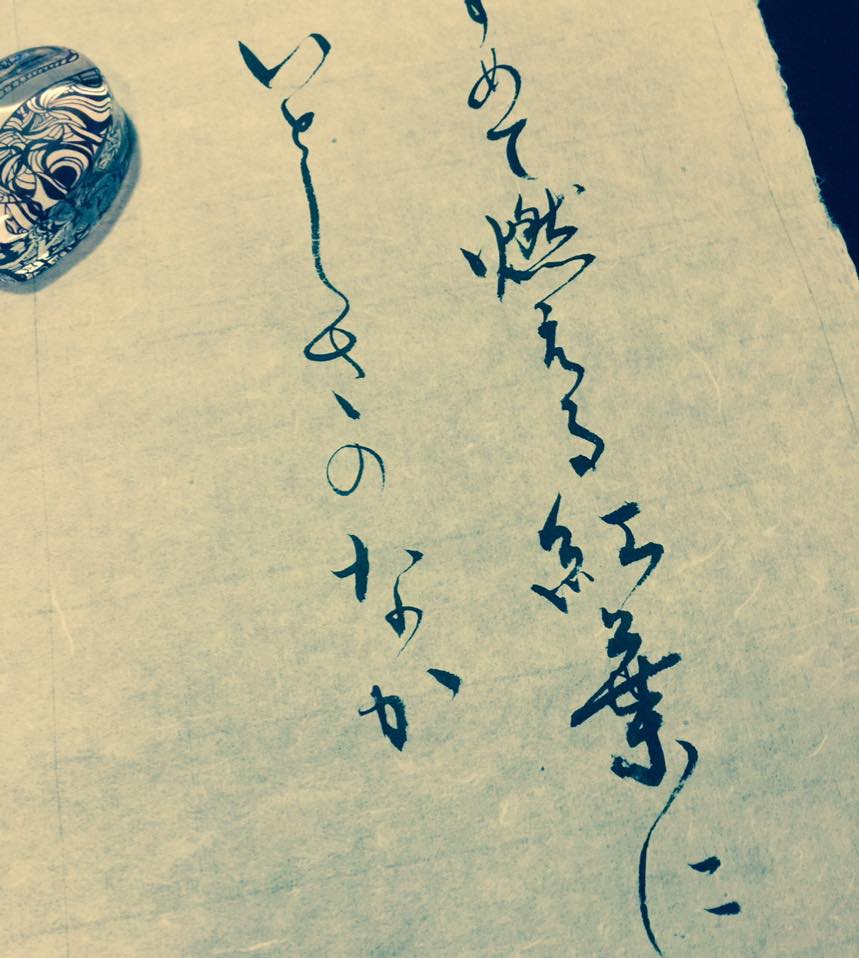 めて燃える紅葉に
いとしさのなか